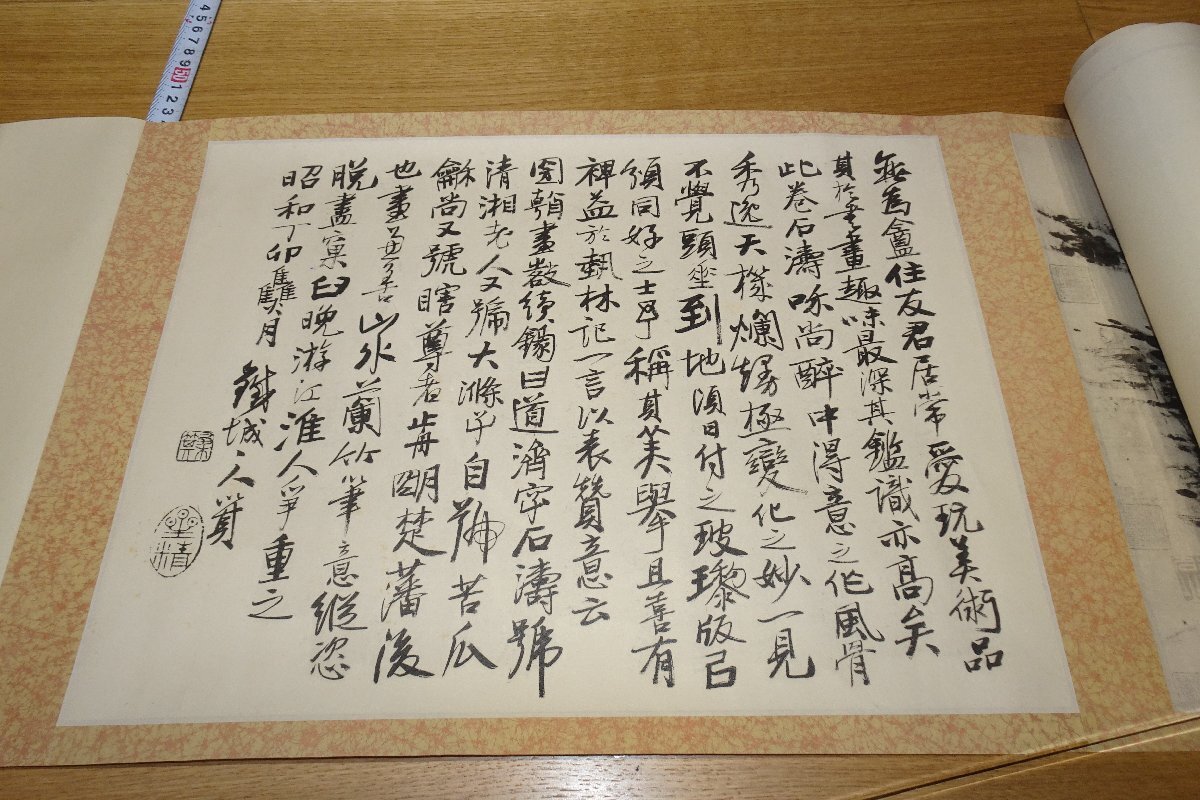 無為盦住友君居常愛玩美術品
其於書畫趣味最深其鑑識亦高矣
此卷石濤和尚醉中得意之作風骨
秀逸天機爛熳極變化之妙一見
不覺頭坐到地須日付之玻瓈版已
頒同好之士予稱其美舉且喜有
裨益於藝林記一言以表贊意云
國朝畫徵續錄曰道濟字石濤號
清湘老人又號大滌子自號苦瓜
龢尚又號瞎尊者前明楚藩後
也畫兼善山水蘭竹筆意縱恣
脫盡窠臼晚游江淮人爭重之
昭和丁卯月
鐵城
4 5 6 7 8 9 50 1 2 3